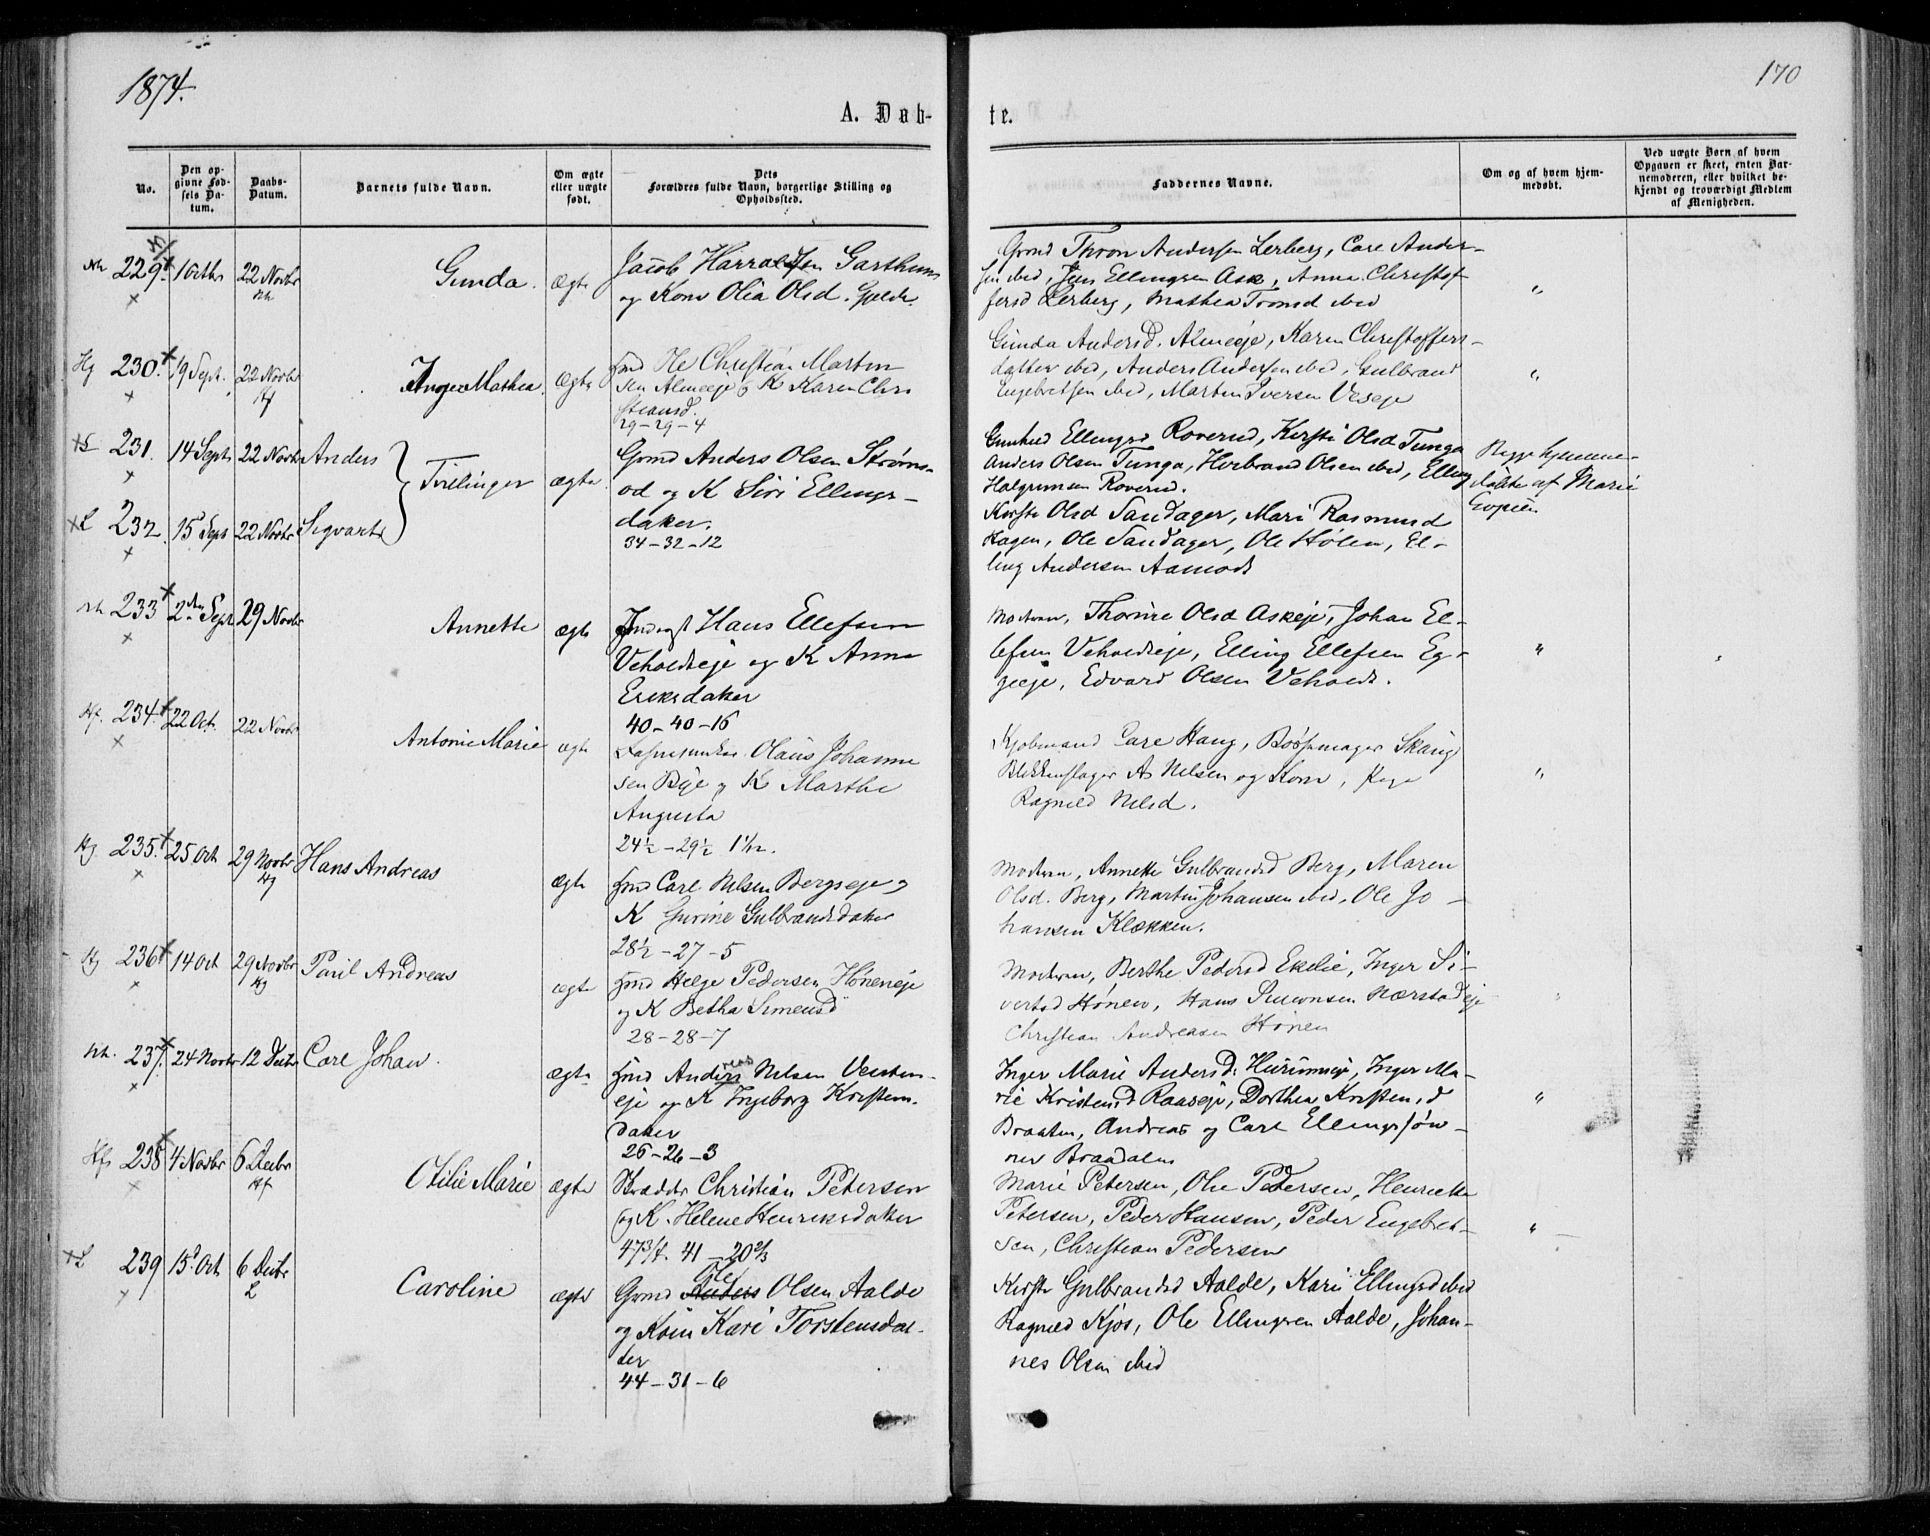 1874.
170
A. Døb-
te.
No.
Den op-
givne Fød-
sels Da-
tum.
Daabs-
Datum.
Barnets fulde Navn.
Om ægte
eller uægte
født.
Dets
Forældres fulde Navn, borgerlige Stilling og
Opholdssted.
Faddernes Navne.
Om og af hvem hjem-
medøbt.
Ved uægte Børn af hvem
Opgaven er skeet, enten Bar-
nemoderen, eller hvilket be-
kjendt og troværdigt Medlem
af Menigheden.
229. 1 Octbr 22 Novbr Gunda. ægte
Jacob Harraldsen Garthus
og Kone Olia Olsd.
Gmd Thron Andersen Lerberg, Carl Ander-
sen ibid, Jens Ellingsen Ask, Anna Christof
fersd Lerberg, Mathea Tronsd ibid
"
230. 19 Sept. 22 Novbr Inger Mathea. ægte
Hmd Ole Christian Martin
sen Almeeje og K Karen Chri
stiansd.
29-29-4
Gunda Andersd. Almeeje, Karen Christoffers-
datter ibid, Anders Andersen ibid, Gulbrand
Engebretsen ibid, Martin Iversen Veseje
"
231. 14 Sept 22 Novbr Anders
Tvillinger ægte
232. 15 Sept 22 Novbr Sigvart
Gmd Anders Olsen Strøms-
od og K Siri Ellings-
datter.
34-32-12
Gunhild Ellingsd Roverud, Kirsti Olsd Tunga
Anders Olsen Tunga, Herbrand Olsen ibid, Elling
Halgrimsen Roverud.
Kirsti Olsd Sandager, Mari Rasmusd
Hagen, Ole Sandager, Ole Hølen, El-
ling Andersen Aamodt
Begge hjemme-
døbte af Marie
233 2den Sept 29 Novbr Annette ægte
Inderst Hans Ellefsen
Veholdteje og K Anne
Eriksdatter
40-40-16
Modren, Thorine Olsd Askeje, Johan El-
lefsen Veholdteje, Elling Ellefsen Eg-
geeje, Edvard Olsen Veholdt.
"
234. 22 Oct. 22 Novbr Antonie Marie ægte
Olaus Johanne
sen Bye og K Marthe
Augusta
24½-29½ 1½.
Kjøbmand Carl Haug, Bøssemager Skaug
Blikkenslager A Nilsen og Kone, Pige
Ragnild Nilsd.
"
235. 25 Oct 29 Novbr Hans Andreas ægte
Hmd Carl Nilsen Bergseje og
K Gurine Gulbrandsdatter
28½-27-5
Modren, Annette Gulbrandsd Berg, Maren
Olsd. Berg, Martin Johansen ibid, Ole Jo-
hansen Klækken.
236 14 Oct 29 Novbr Paul Andreas ægte
Hmd Helge Pedersen Høneneje
og K Betha Simensd
28-28-7
Modren, Berthe Pedersd Ekelie, Inger Si-
vertsd Hønen, Hans Simonsen Nærstadeje
Christian Andreasen Hønen
237. 24 Novbr 12 Decbr Carl Johan. ægte
Hmd Andreas Nilsen Versten-
eje og K Ingeborg Kristens
datter
26-26-3
Inger Marie Andersd. Hurumseje, Inger Ma-
rie Kristensd Raaseje, Dorthea Kristens.d
Braaten, Andreas og Carl Ellingssøn-
ner Braadalen
"
238 4 Novbr 6 Decbr Otilie Marie ægte
Skrædder Christian Petersen
og K. Helene Henriksdatter
47¾. 41-20⅔
Marie Petersen, Ole Pedersen, Henriette
Petersen, Peder Hansen, Peder Engebret-
sen, Christian Pedersen
"
239 15 Oct 6 Decbr Caroline ægte
Ole
Gmd Anders Olsen Aalde
og Kone Kari Torstensdat-
ter
44-31-6
Kirsti Gulbrandsd Aalde, Kari Ellingsd ibid
Ragnild Kjos, Ole Ellingsen Aalde, Johan-
nes Olsen ibid